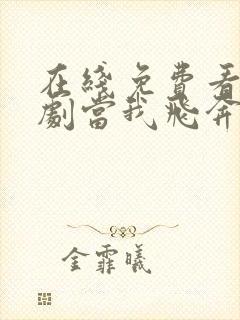 在綫免費看
劇當我飛奔
金霏曦